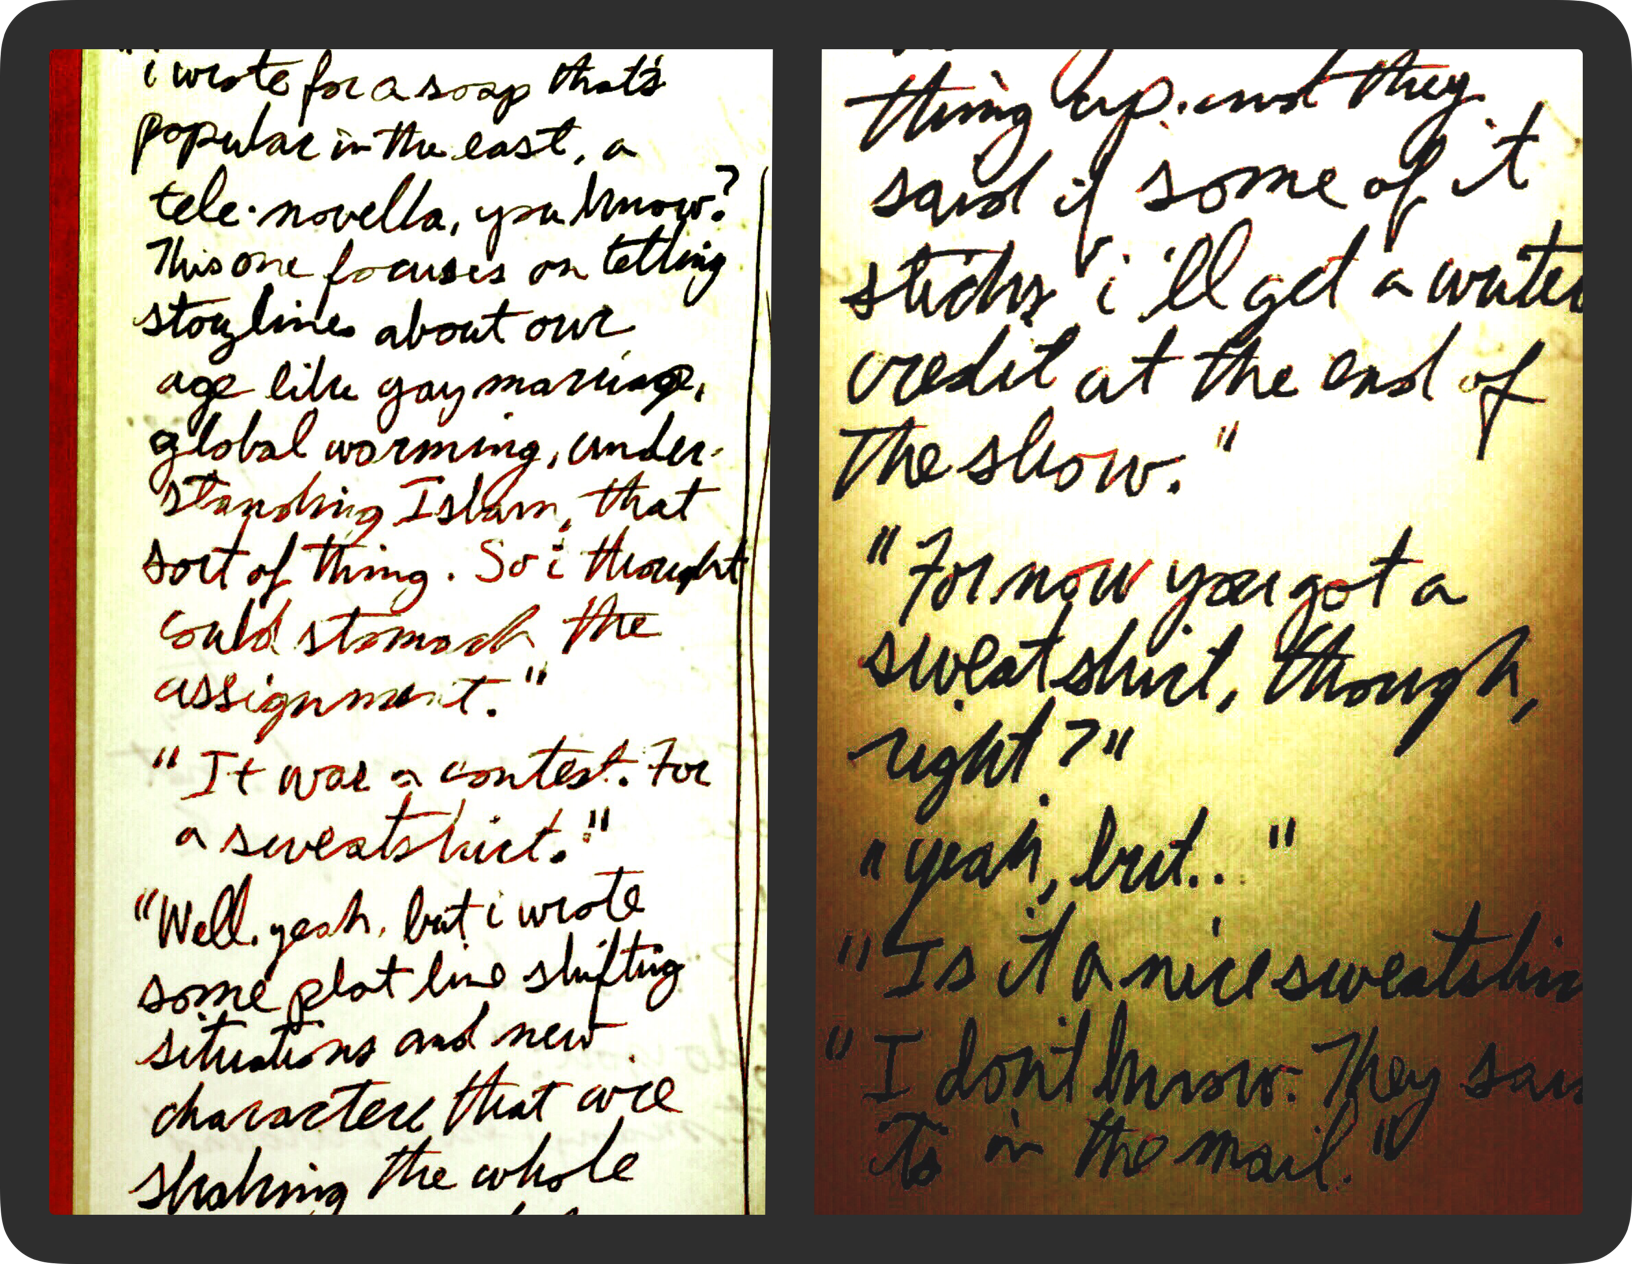 "i wrote for a soap that's
popular in the east, a
tele-novella, you know?
This one focuses on telling
storylines about our
age like gay marriage,
global warming, under-
standing Islam, that
sort of thing. So i thought
could stomach the
assignment."
"It was a contest. For
a sweatshirt."
"Well, yeah, but i wrote
some plot line shifting
situations and new
characters that are
shaking the whole
thing up. and they
said if some of it
sticks i'll get a writer
credit at the end of
the show."
"For now you got a
sweatshirt, though,
right?"
"yeah, but.."
"Is it a nice sweatshir
"I don't know. They sai
its in the mail."